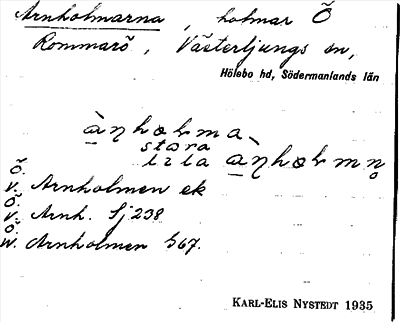 Arnholmarna, holmar Ö
Rommarö, Västerljungs sn,
Hölebo hd, Södermanlands län
àŋhoɫma
stora
lilla àŋhoɫmn̥
Ö.
V. Arnholmen ek
Ö.
V. Arnh. Sj 238
Ö.
W. Arnholmen h67.
KARL-ELIS NYSTEDT 1935